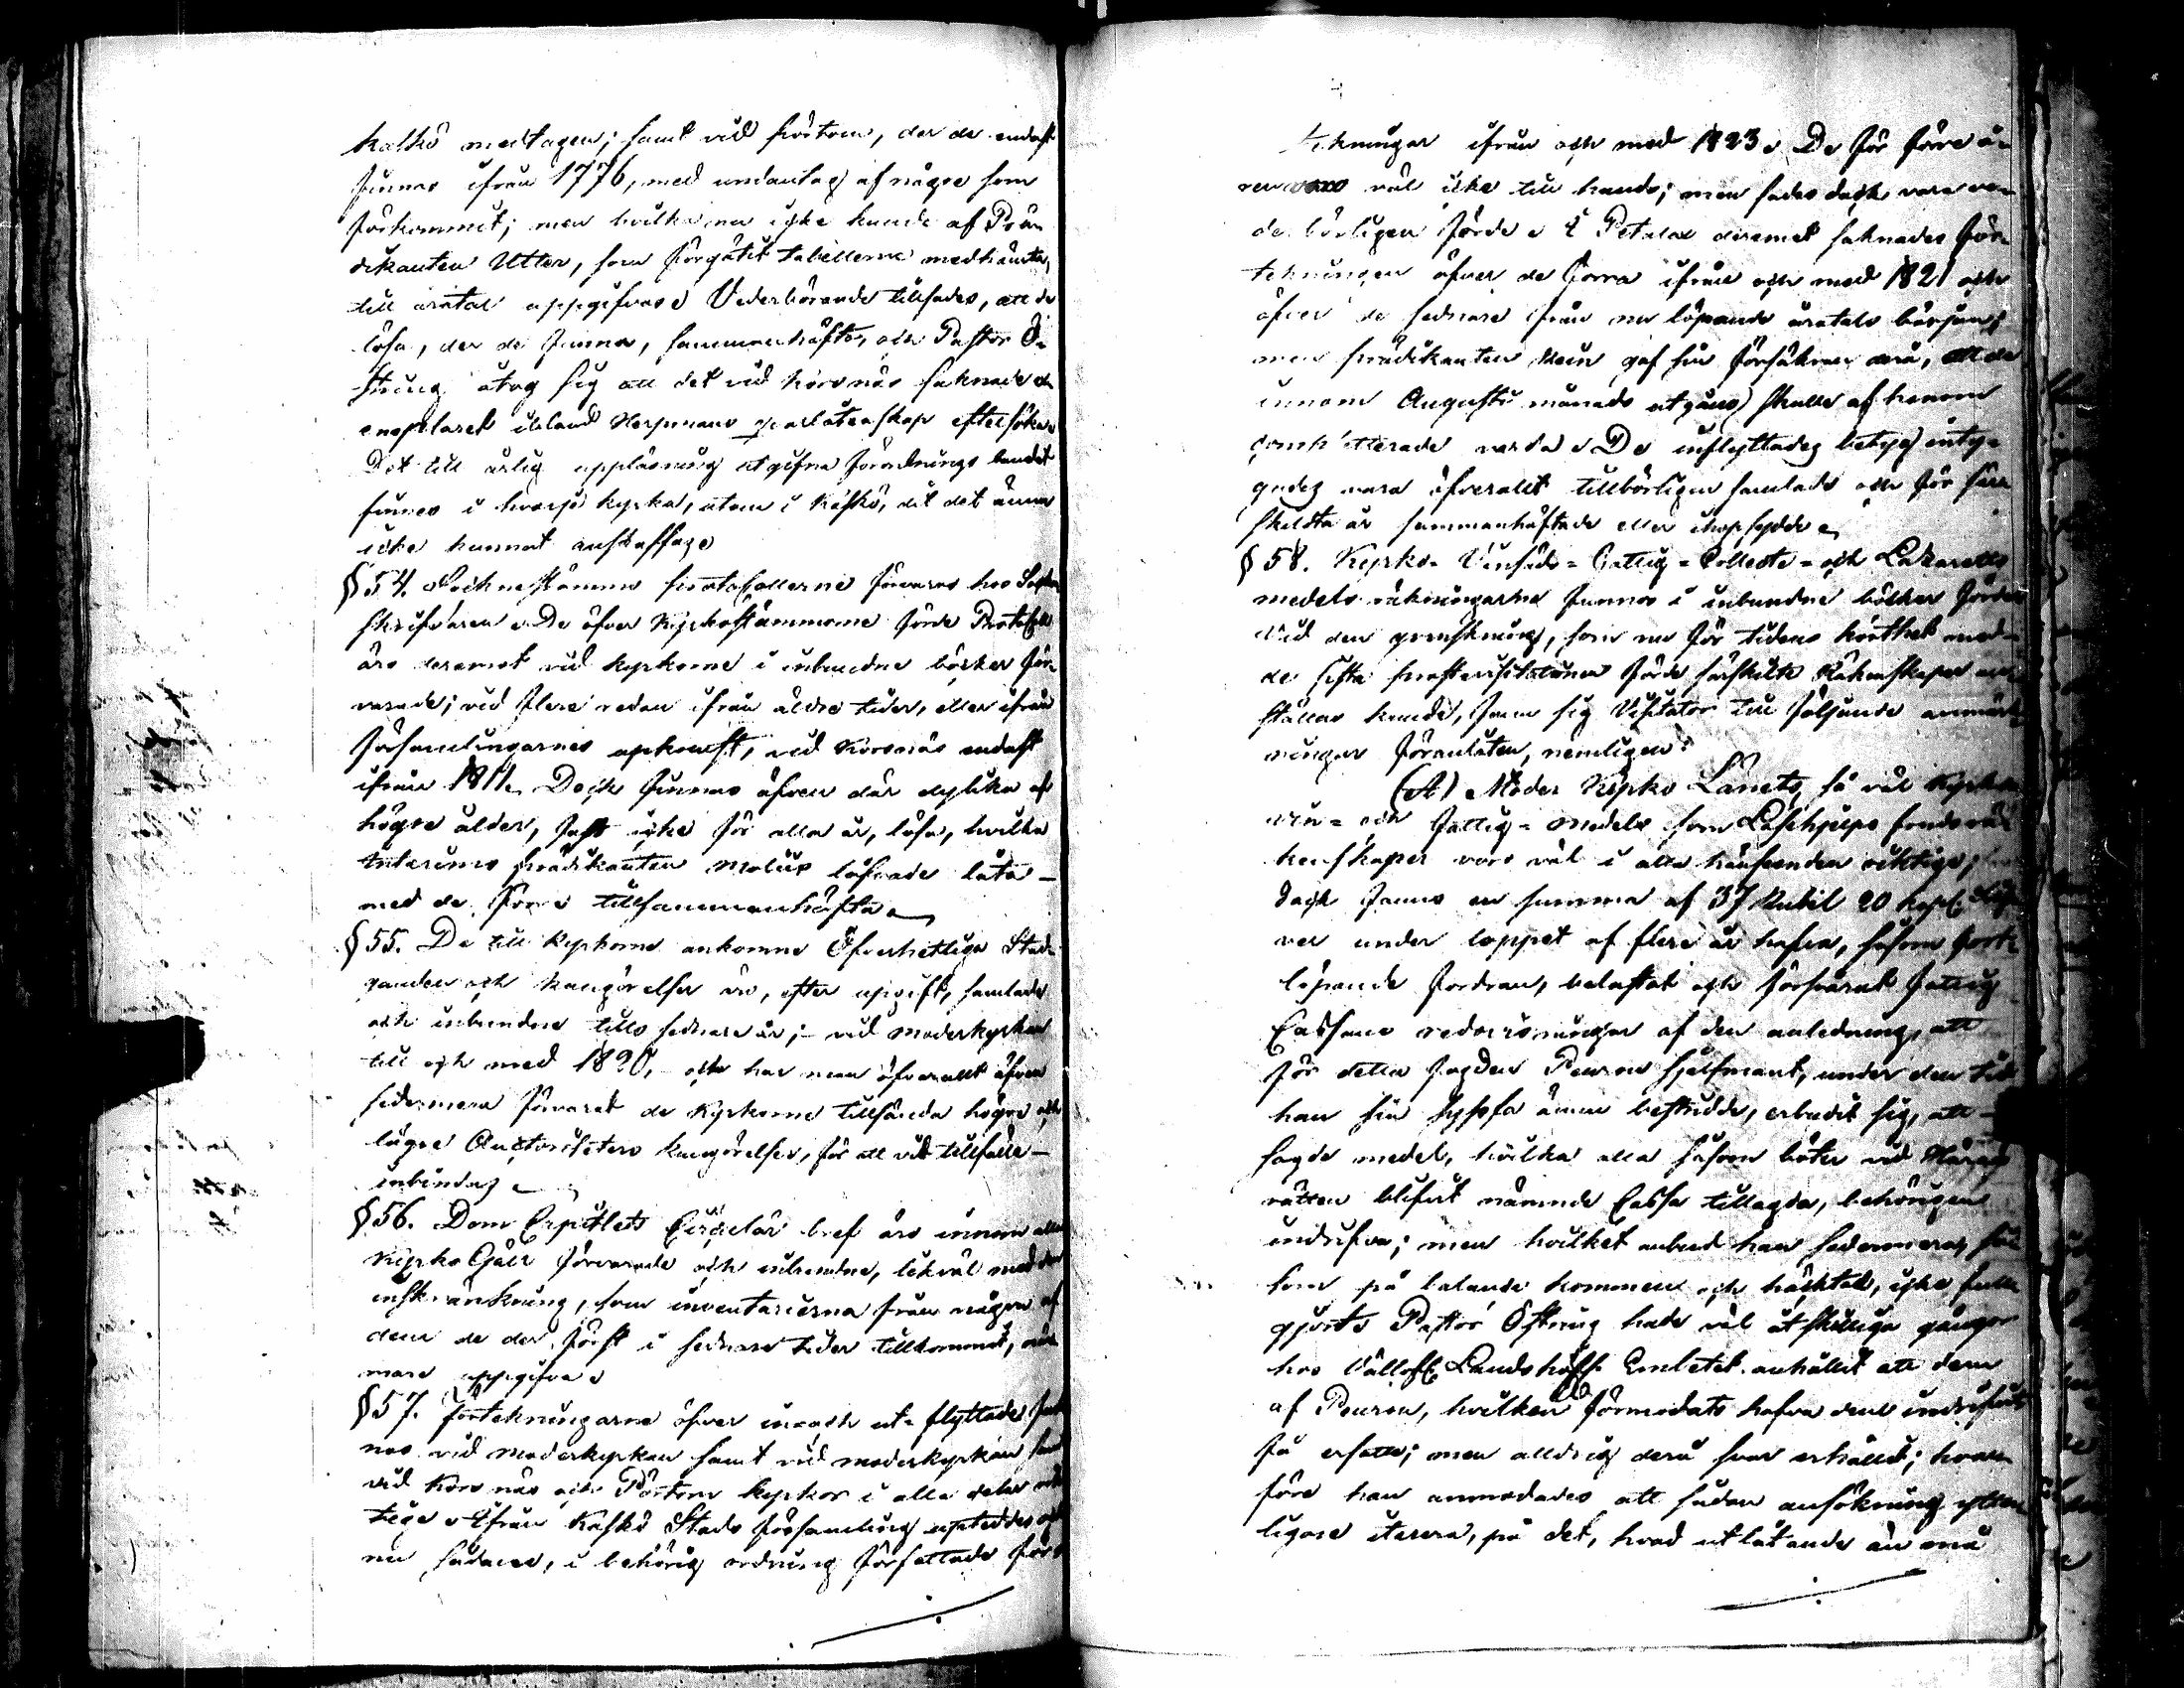 kaskö medtagen; samt vid Pörtom, der de endast
finnas ifrån 1776, med undantag af någre som
förkommit; men hvilka nu icke kunde af Præ-
dikanten Utter, som förgätit tabellerne medhämta,
till årtal uppgifvas. Vederbörande tillsades, att de
lösa, der de finnas, sammanhäfta, och Pastor Ö-
string åtog sig att det vid Korsnäs saknade
exemplaret ibland Herrmans qvarlåtenskap eftersöka.
Det till årlig uppläsning utgifna förordnings bandet
finnes i hvarje kyrka, utom i Kaskö, dit det ännu
icke kunnat anskaffas.
§ 54. Sockne Stämmo protokollerne förvaras hos Sockne
skrifvaren. De öfver Kyrkostämmorne förde Protokoll
äro deremot vid kyrkorne i inbundne böcker för-
varade; vid flere redan ifrån äldre tider, eller ifrån
församlingarnes upkomst, vid Korsnäs endast
ifrån 1811. Dock finnas äfven där dylika af
högre ålder, fast icke för alla år, lösa, hvilka
Interims prædikanten Molius lofvade låta
med de förra tillsammanhäfta.
§ 55. De till Kyrkorne ankomne Öfverhetliga Stad-
ganden och kungörelser äro, efter upgift, samlade
och inbundne tills sednare år; vid moderkyrkan
till och med 1820, och har man öfverallt äfven
sedermera förvarat de Kyrkorne tillsända högre och
lägre Auctoriteters kungörelser, för att vid tillfälle
inbindas.
§ 56. Dom Capitlets Circulär bref äro innom alla
Kyrko Gäll förvarade och inbundne, likväl med den
inskränkning, som inventarierna från någon af
dem de der först i sednare tider tillkommit, när-
mare uppgifva.
§ 57. Förtekningarne öfver in och ut-flyttade fin-
nas vid moderkyrkan samt vid moderkyrkan samt
vid Korsnäs och Pörtom kyrkor i alla delar rik-
tige. Ifrån Kaskö Stads församling upteddes
nu sådane, i behörig ordning författade för-
tekningar ifrån och med 1823. De för förre å-
ren voro väl icke till hands; men sades dock vara
de börligen förde. I Petalax deremot saknades för-
tekningen öfver de förra ifrån och med 1821 och
öfver de sednare ifrån nu löpande årtals början;
men prædikanten Hein gaf sin försäkran derå, att de
innom Augusti månads utgång skulle af honom
completterade varda. De inflyttades betyg intyg-
ades vara öfverallt tillbörligen samlade och för sär-
skildta år sammanhäftade eller ihopsydde.
§ 58. Kyrko- Vinsäds- Fattig- Collecte- och Lazaretts
medels räkningarne funnos i inbundne böcker förde.
Vid den granskning, som nu för tidens korthet med
de sista prostevisitationer förde särskilte Räkenskaper
ställas kunde, fann sig Visitator till följande anmärk-
ningar föranlåten, nemligen:
(A) Moder Kyrko Länets, så väl Kyrko
vin- och fattig- medels som Läsehjelps fonds rä-
kenskaper voro väl i alla hänseenden riktige;
dock fanns en summa af 37 Rubel 20 kop.
ver under loppet af flere år hafva, såsom fort-
löpande fordran, belastat och försvårat fattig
Cassans redovisningar af den anledning, att
för detta fogden Peuron sjelfmant, under den tid
han sin syssla ännu bestridde, erbudit sig, att
sagde medel, hvilka alla såsom böter vid Härads
rätten blifvit nämnde Cassa tillagda, behörigen
indrifva; men hvilket anbud han sedermera, så-
som på balance kommen och häcktad, icke full-
gjort. Pastor Östring hade väl åtskilliga gånger
hos Vällofl. Landshöfd. Embetet anhållit att dem
af Peuron, hvilken förmodats hafva dem indrifvit
få ersatte; men alldrig derå svar erhållit; hvar-
före han anmodades att sådan ansökning ytter-
ligare iterera, på det, hvad utlåtande än må